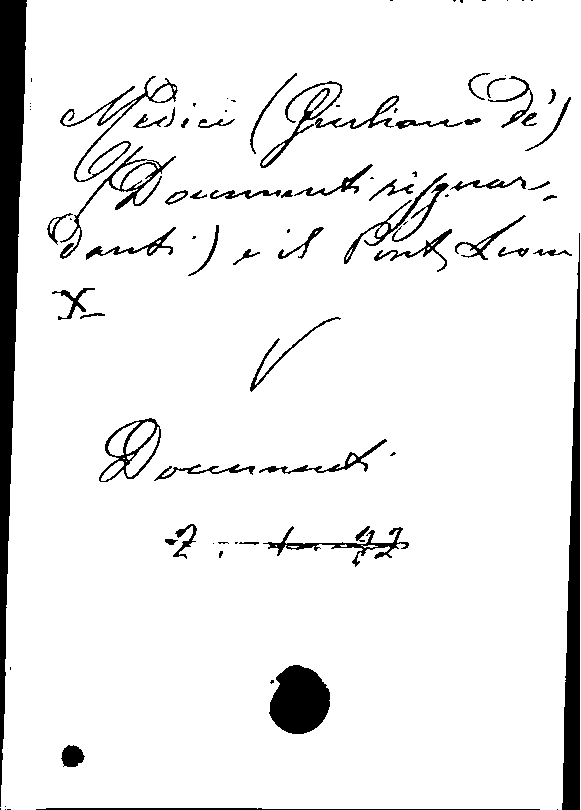 Medici (Giuliano de')
(Documenti risguar-
danti) e il Pont. Leone
X
V
Documenti